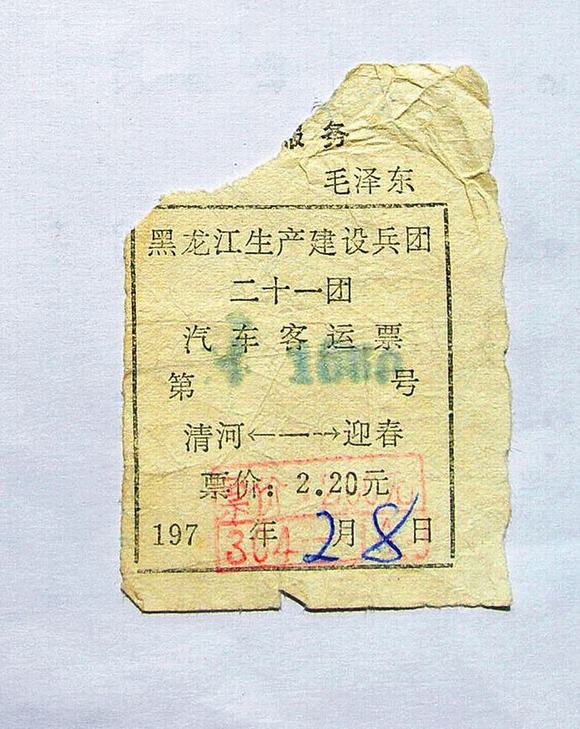 务
毛泽东
黑龙江生产建设兵团
二十一团
汽车客运票
第 号
清河←—→迎春
票价：2.20元
197 年2月8日